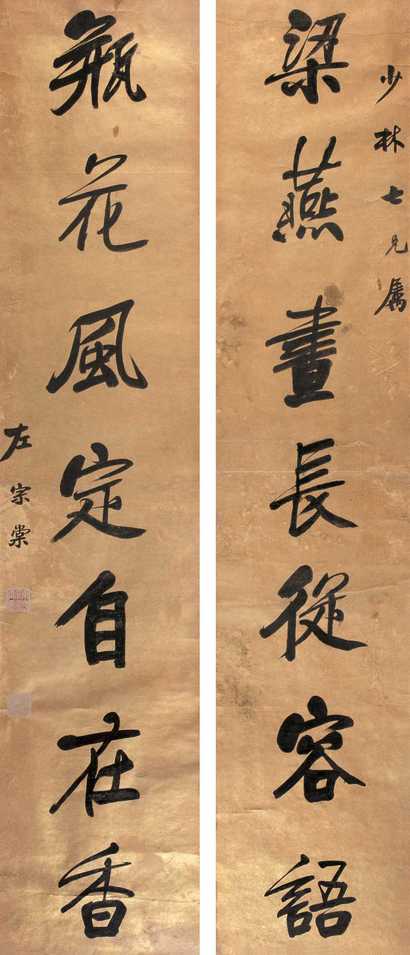 少林七兄属
梁燕晝長從容語
瓶花風定自在香
左宗棠